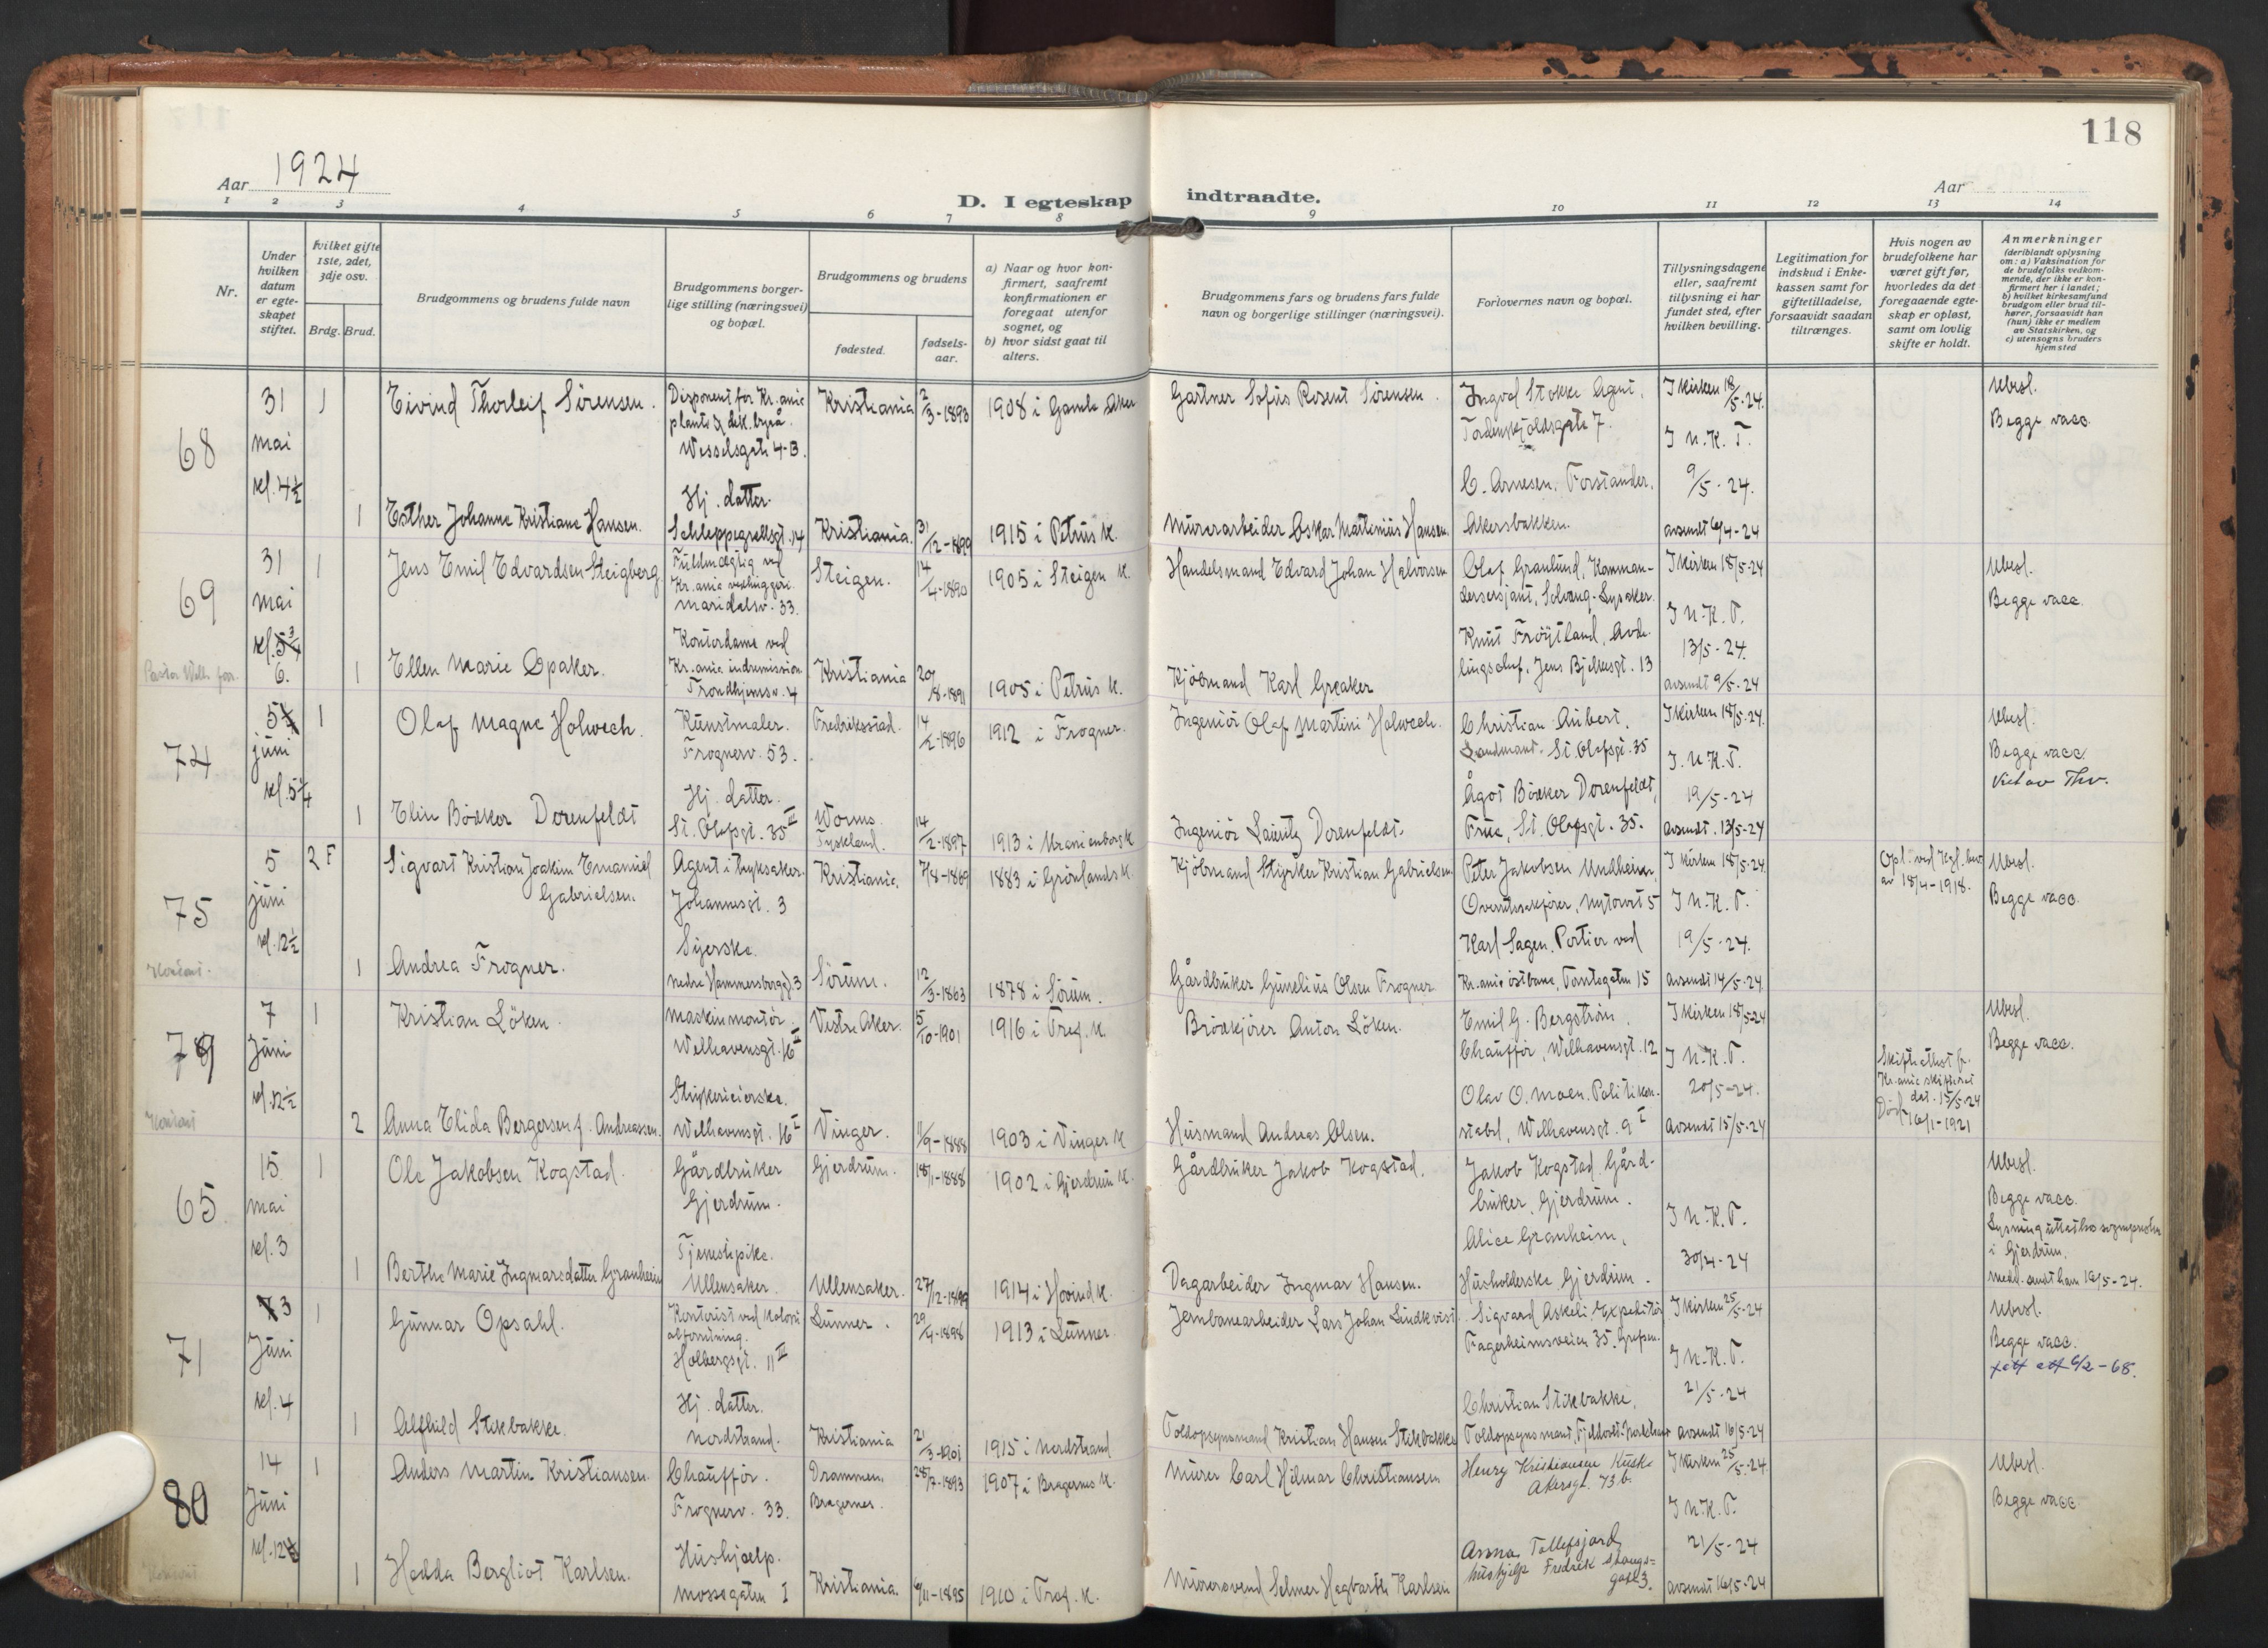 118
Aar 1924
D. I egteskap indtraadte.
Aar
1 2 3 4 5 6 7 8 9 10 11 12 13 14
Nr.
Under hvilken datum er egteskapet stiftet.
Hvilket gifte 1ste, 2det, 3dje osv.
Brdg. Brud.
Brudgommens og brudens fulde navn
Brudgommens borgerlige stilling (næringsvei) og bopæl.
Brudgommens og brudens
fødested.
fødselsaar.
a) Naar og hvor konfirmert, saafremt konfirmationen er foregaat utenfor sognet, og
b) hvor sidst gaat til alters.
Brudgommens fars og brudens fars fulde navn og borgerlige stillinger (næringsvei).
Forlovernes navn og bopæl.
Tillysningsdagene eller, saafremt tillysning ei har fundet sted, efter hvilken bevilling.
Legitimation for indskud i Enkekassen samt for giftetilladelse, forsaavidt saadan tiltrænges.
Hvis nogen av brudefolkene har været gift før, hvorledes da det foregaaende egteskap er opløst, samt om lovlig skifte er holdt.
Anmerkninger (deriblandt oplysning om: a) Vaksination for de brudefolks vedkommende, der ikke er konfirmert her i landet; b) hvilket kirkesamfund brudgom eller brud tilhører, forsaavidt han (hun) ikke er medlem av Statskirken, og c) utensogns bruders hjemsted
68
31 mai kl. 4½
1 Eivind Thorleif Sörensen.
Disponent for Kr.ania plante & dek.byrå. Wesselsgate 4-B.
Kristiania 2/3-1893
1908 i Gamle Aker
Gartner Sofus Rosent Sörensen.
Ingvol Stokke Agent, Tordenskjoldsgate 7.
C. Arnesen, Forstander, Akersbakken.
I kirken 18/5-24.
I N.K.T. 9/5-24.
avsendt 6/4-24
Ubesl.
Begge vacc.
1 Esther Johanne Kristiane Hansen.
Hj. datter. Schleppegrellsgt. 14
Kristiania. 31/12-1899
1915 i Petrus K.
Murerarbeider Oskar Martinius Hansen.
69
31 mai kl. 5¾ 6.
1 Jens Emil Edvardsen Steigberg
Fuldmægtig ved Kr.ania vedhuggeri. Maridalsv. 33.
Steigen. 14/4-1890
1905 i Steigen K.
Handelsmand Edvard Johan Halvorsen
Olaf Granlund, Kommandersersjant, Solvang-Lysaker.
Knut Fröytland, Avdelingschef, Jens Bjelkesgt. 13
I kirken 18/5-24
I N.K.T. 13/5-24.
avsendt 9/5-24
Ubesl.
Begge vacc.
1 Ellen Marie Opaker.
Kontordame ved Kr.ania indremission Trondhjemsv. 4
Kristiania 20/8-1891
1905 i Petrus K.
Kjöbmand Karl Greaker
74
5 juni kl. 5¼
1 Olaf Magne Holwech.
Kunstmaler. Frognerv. 53.
Fredriksstad. 14/2-1896
1912 i Frogner.
Ingeniör Olaf Martini Holwech.
Christian Aubert, Landmand. St. Olafsgt. 35
Ågot Bödker Dorenfeldt, Frue, St. Olafsgt. 35.
I kirken 18/5-24.
I N.K.T. 19/5-24
avsendt. 13/5-24
Ubesl.
Begge vacc.
Viet av Thv.
1 Elin Bödker Dorenfeldt
Hj. datter. St. Olafsgt. 35 III
Worms Tyskland. 14/2-1897
1913 i Uranienborg K
Ingeniör Lauritz Dorenfeldt.
75
5 juni kl. 12½
2 F Sigvart Kristian Joakim Emanuel Gabrielsen.
Agent i tryksaker. Johannesgt. 3
Kristiania. 7/8-1869
1883 i Grönlands K.
Kjöbmand Styrker Kristian Gabrielsen
Peter Jakobsen Undheim, Overretssakförer, Nytorvet 5
Karl Sagen. Portier ved Kr.ania östbane, Tomtegaten 15
I kirken 18/5-24.
I N.K.T. 19/5-24.
avsendt 14/5-24
Opl. ved Kgl. bev. av 18/4-1918.
Ubesl.
Begge vacc.
1 Andrea Frogner.
Syerske. Nedre Hammersborggt. 3
Sörum. 12/3-1863
1878 i Sörum.
Gårdbruker Gunelius Olsen Frogner
79
7 Juni kl. 12½
1 Kristian Löken.
Maskinmontör. Welhavensgt. 16 II
Vestre Aker. 5/10-1901
1916 i Tref. K.
Brödkjörer Anton Löken.
Emil G. Bergström, Chaufför, Welhavensgt. 12
Olav O. Moen. Politikonstabel, Welhavensgt. 9 I
I kirken 18/5-24
I N.K.T. 20/5-24.
avsendt 15/5-24
Skifteattest fr. Kr.ania skifteret dat. 15/5-24
Död 16/1-1921
Ubesl.
Begge vacc.
2 Anna Elida Bergersen f. Andreassen.
Strykericierske. Welhavensgt. 16 I
Vinger. 11/9-1888
1903 i Vinger K
Husmand Andreas Olsen.
65.
15 mai kl. 3
1 Ole Jakobsen Kogstad.
Gårdbruker Gjerdrum.
Gjerdrum. 18/1-1888
1902 i Gjerdrum K.
Gårdbruker Jakob Kogstad.
Jakob Kogstad, Gårdbruker, Gjerdrum.
Alice Granheim, Husholderske, Gjerdrum.
I N.K.T. 30/4-24
Ubesl.
Begge vacc.
Lysning uttat hos sognepresten i Gjerdrum.
Medl. sendt ham 16/5-24.
1 Berthe Marie Ingmarsdatter Granheim
Tjenestepike. Ullensaker.
Ullensaker. 27/12-1899
1914 i Hovind K.
Dagarbeider Ingmar Hansen.
71
3 Juni kl. 4
1 Gunnar Opsahl.
Kontorist ved Kolonialforretning. Holbergsgt. 11 III
Lunner. 29/4-1898
1913 i Lunner.
Jernbanearbeider Lars Johan Lindkvist.
Sigvard Askeli, Expeditör Fagerheimsveien 35. Grefsen.
Christian Stikbakke,
Toldopsynsmand,
I kirken 25/5-24
I N.K.T. 21/5-24
avsendt 16/5-24
Ubesl.
Begge vacc.
att 6/2-68.
1 Alfhild Stikbakke.
Hj. datter. Nordstrand.
Kristiania 21/3-1901
1915 i Nordstrand
Toldopsynsmand Kristian Hansen Stikbakke
80
14 Juni kl. 12
1 Anders Martin Kristiansen.
Chauffför. Frognerv. 33.
Drammen, Bragernes. 28/7-1893
1907 i Bragernes K.
Murer Carl Hilmar Christiansen
Henry Kristiansen Kusk. Akersgt. 73 b.
Anna Tollefsjord hushjelp Fredrik Stangsgate 3.
I kirken 25/5-24.
I N.K.T. 21/5-24
avsendt 16/5-24
Ubesl.
Begge vacc.
1 Hedda Bergliot Karlsen.
Hushjælp. Mossegaten I
Kristiania. 6/11-1895
1910 i Tref. K.
Murersvend Selmer Hagbarth Karlsen